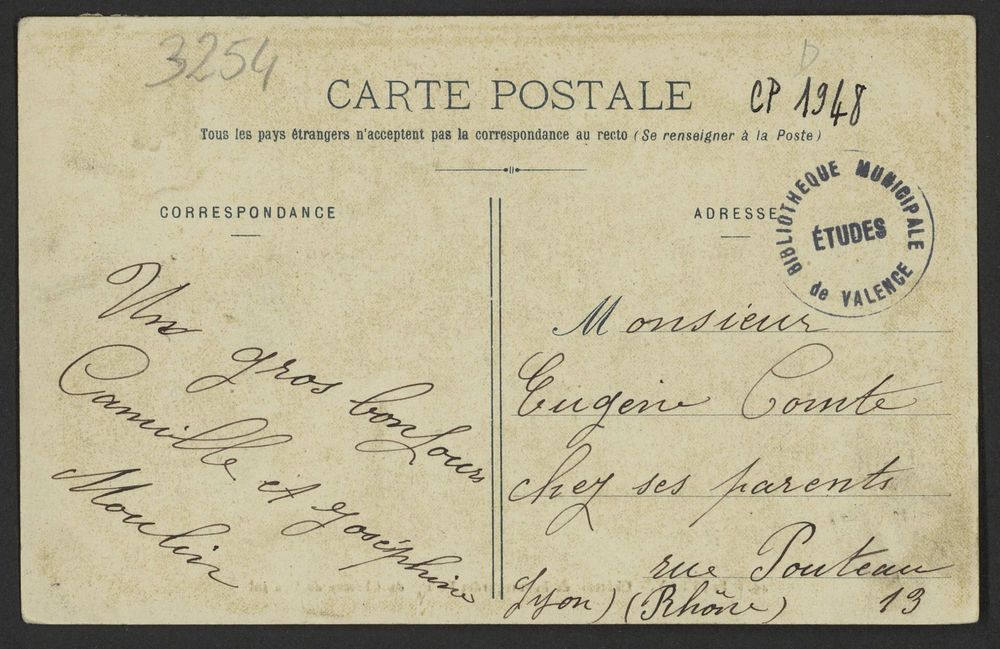 3254
CARTE POSTALE
CP 1948
D
Tous les pays étrangers n'acceptent pas la correspondance au recto (Se renseigner à la Poste)
CORRESPONDANCE
ADRESSE
BIBLIOTHEQUE MUNICIPALE
ÉTUDES
de VALENCE
Un
gros bonjour
Camille et Joséphine
Moulin
Monsieur
Eugène Comte
chez ses parents
rue Pouteau
Lyon) (Rhône) 13